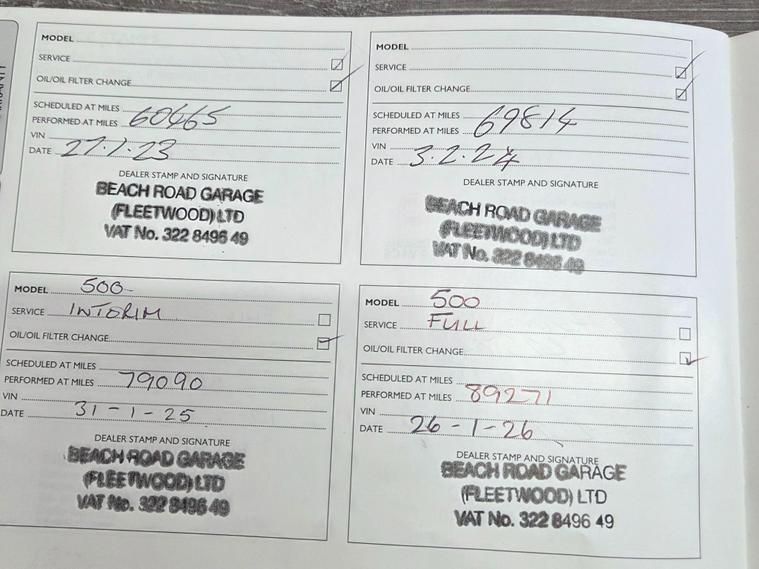 MODEL
SERVICE
OIL/OIL FILTER CHANGE
SCHEDULED AT MILES
PERFORMED AT MILES 60465
VIN
DATE 27.1.23
DEALER STAMP AND SIGNATURE
BEACH ROAD GARAGE
(FLEETWOOD) LTD
VAT No. 322 8496 49
MODEL
SERVICE
OIL/OIL FILTER CHANGE
SCHEDULED AT MILES
PERFORMED AT MILES 69814
VIN
DATE 3.2.24
DEALER STAMP AND SIGNATURE
BEACH ROAD GARAGE
(FLEETWOOD) LTD
VAT No. 322 8496 49
MODEL 500
SERVICE INTORIM
OIL/OIL FILTER CHANGE
SCHEDULED AT MILES
PERFORMED AT MILES 79090
VIN
DATE 31-1-25
DEALER STAMP AND SIGNATURE
BEACH ROAD GARAGE
(FLEETWOOD) LTD
VAT No. 322 8496 49
MODEL 500
SERVICE FULL
OIL/OIL FILTER CHANGE
SCHEDULED AT MILES
PERFORMED AT MILES 89271
VIN
DATE 26-1-26
DEALER STAMP AND SIGNATURE
BEACH ROAD GARAGE
(FLEETWOOD) LTD
VAT No. 322 8496 49